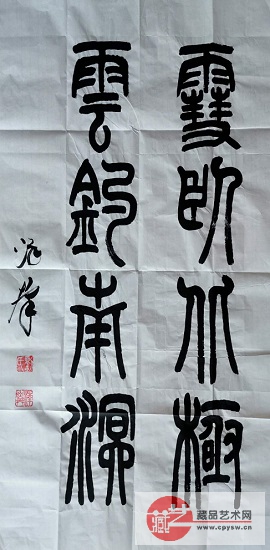 雪臥北極
雲釣南溟
藏品艺术网
www.cpysw.cn